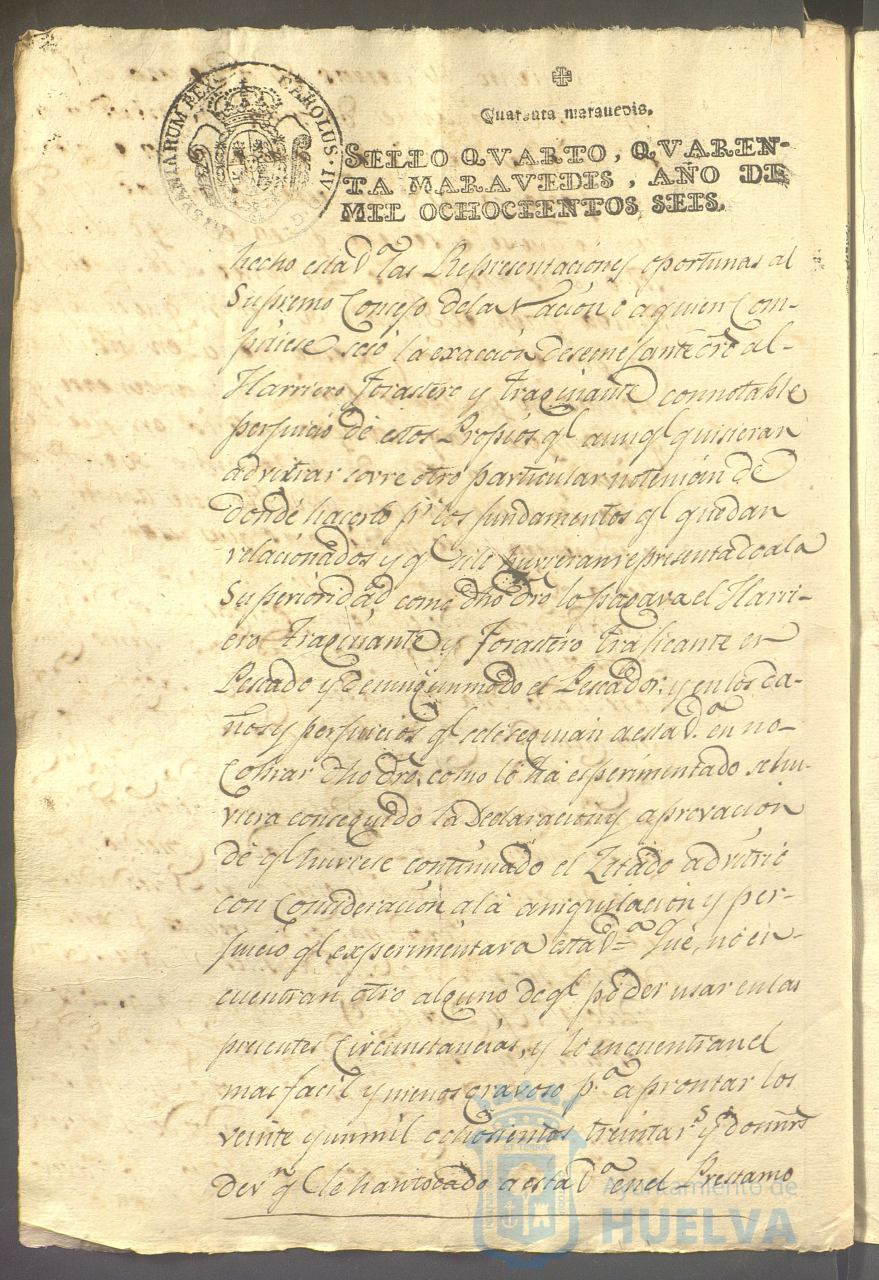 HISPANIARUM REX CAROLUS·IV·D·G·
Quarenta maravedis.
SELLO QVARTO, QVAREN-
TA MARAVEDIS, AÑO DE
MIL OCHOCIENTOS SEIS.
hecho esta Vª las Representaciones oportunas al
Supremo Consejo dela Nación o aquien Com-
pitiese, sesó la exacción desemejante dro al
Harriero Forastero y Traginante connotable
perjuicio de estos Propios qe aunqe quisieran
advitrar sovre otro particular notenian de
donde hacerlo pr los fundamentos qe quedan
relacionados y qe silo huvieran representado ala
Superioridad como dho dro lo pagava el Harri-
ero Traginante y Forastero traficante en
Pescado y de ningun modo el Pescador; y en los da-
ños y perjuicios qe sele seguian aesta Vª en no
Cobrar dho dro, como lo há esperimentado se hu-
viera conseguido la Declaracion y aprovación
de qe huviese continuado el Zitado advitrio
con Consideración ala aniquilación y per-
juicio qe experimentava esta Vª Que, no en-
cuentran otro alguno deqe poder usar en las
presentes Circunstancias, y lo encuentran el
mas facil y menos gravoso pª aprontar los
veinte y un mil ochosientos treinta rs y dos mrs
de vn qe le han tocado a esta Vª en el Prestamo
Ayuntamiento de
HUELVA